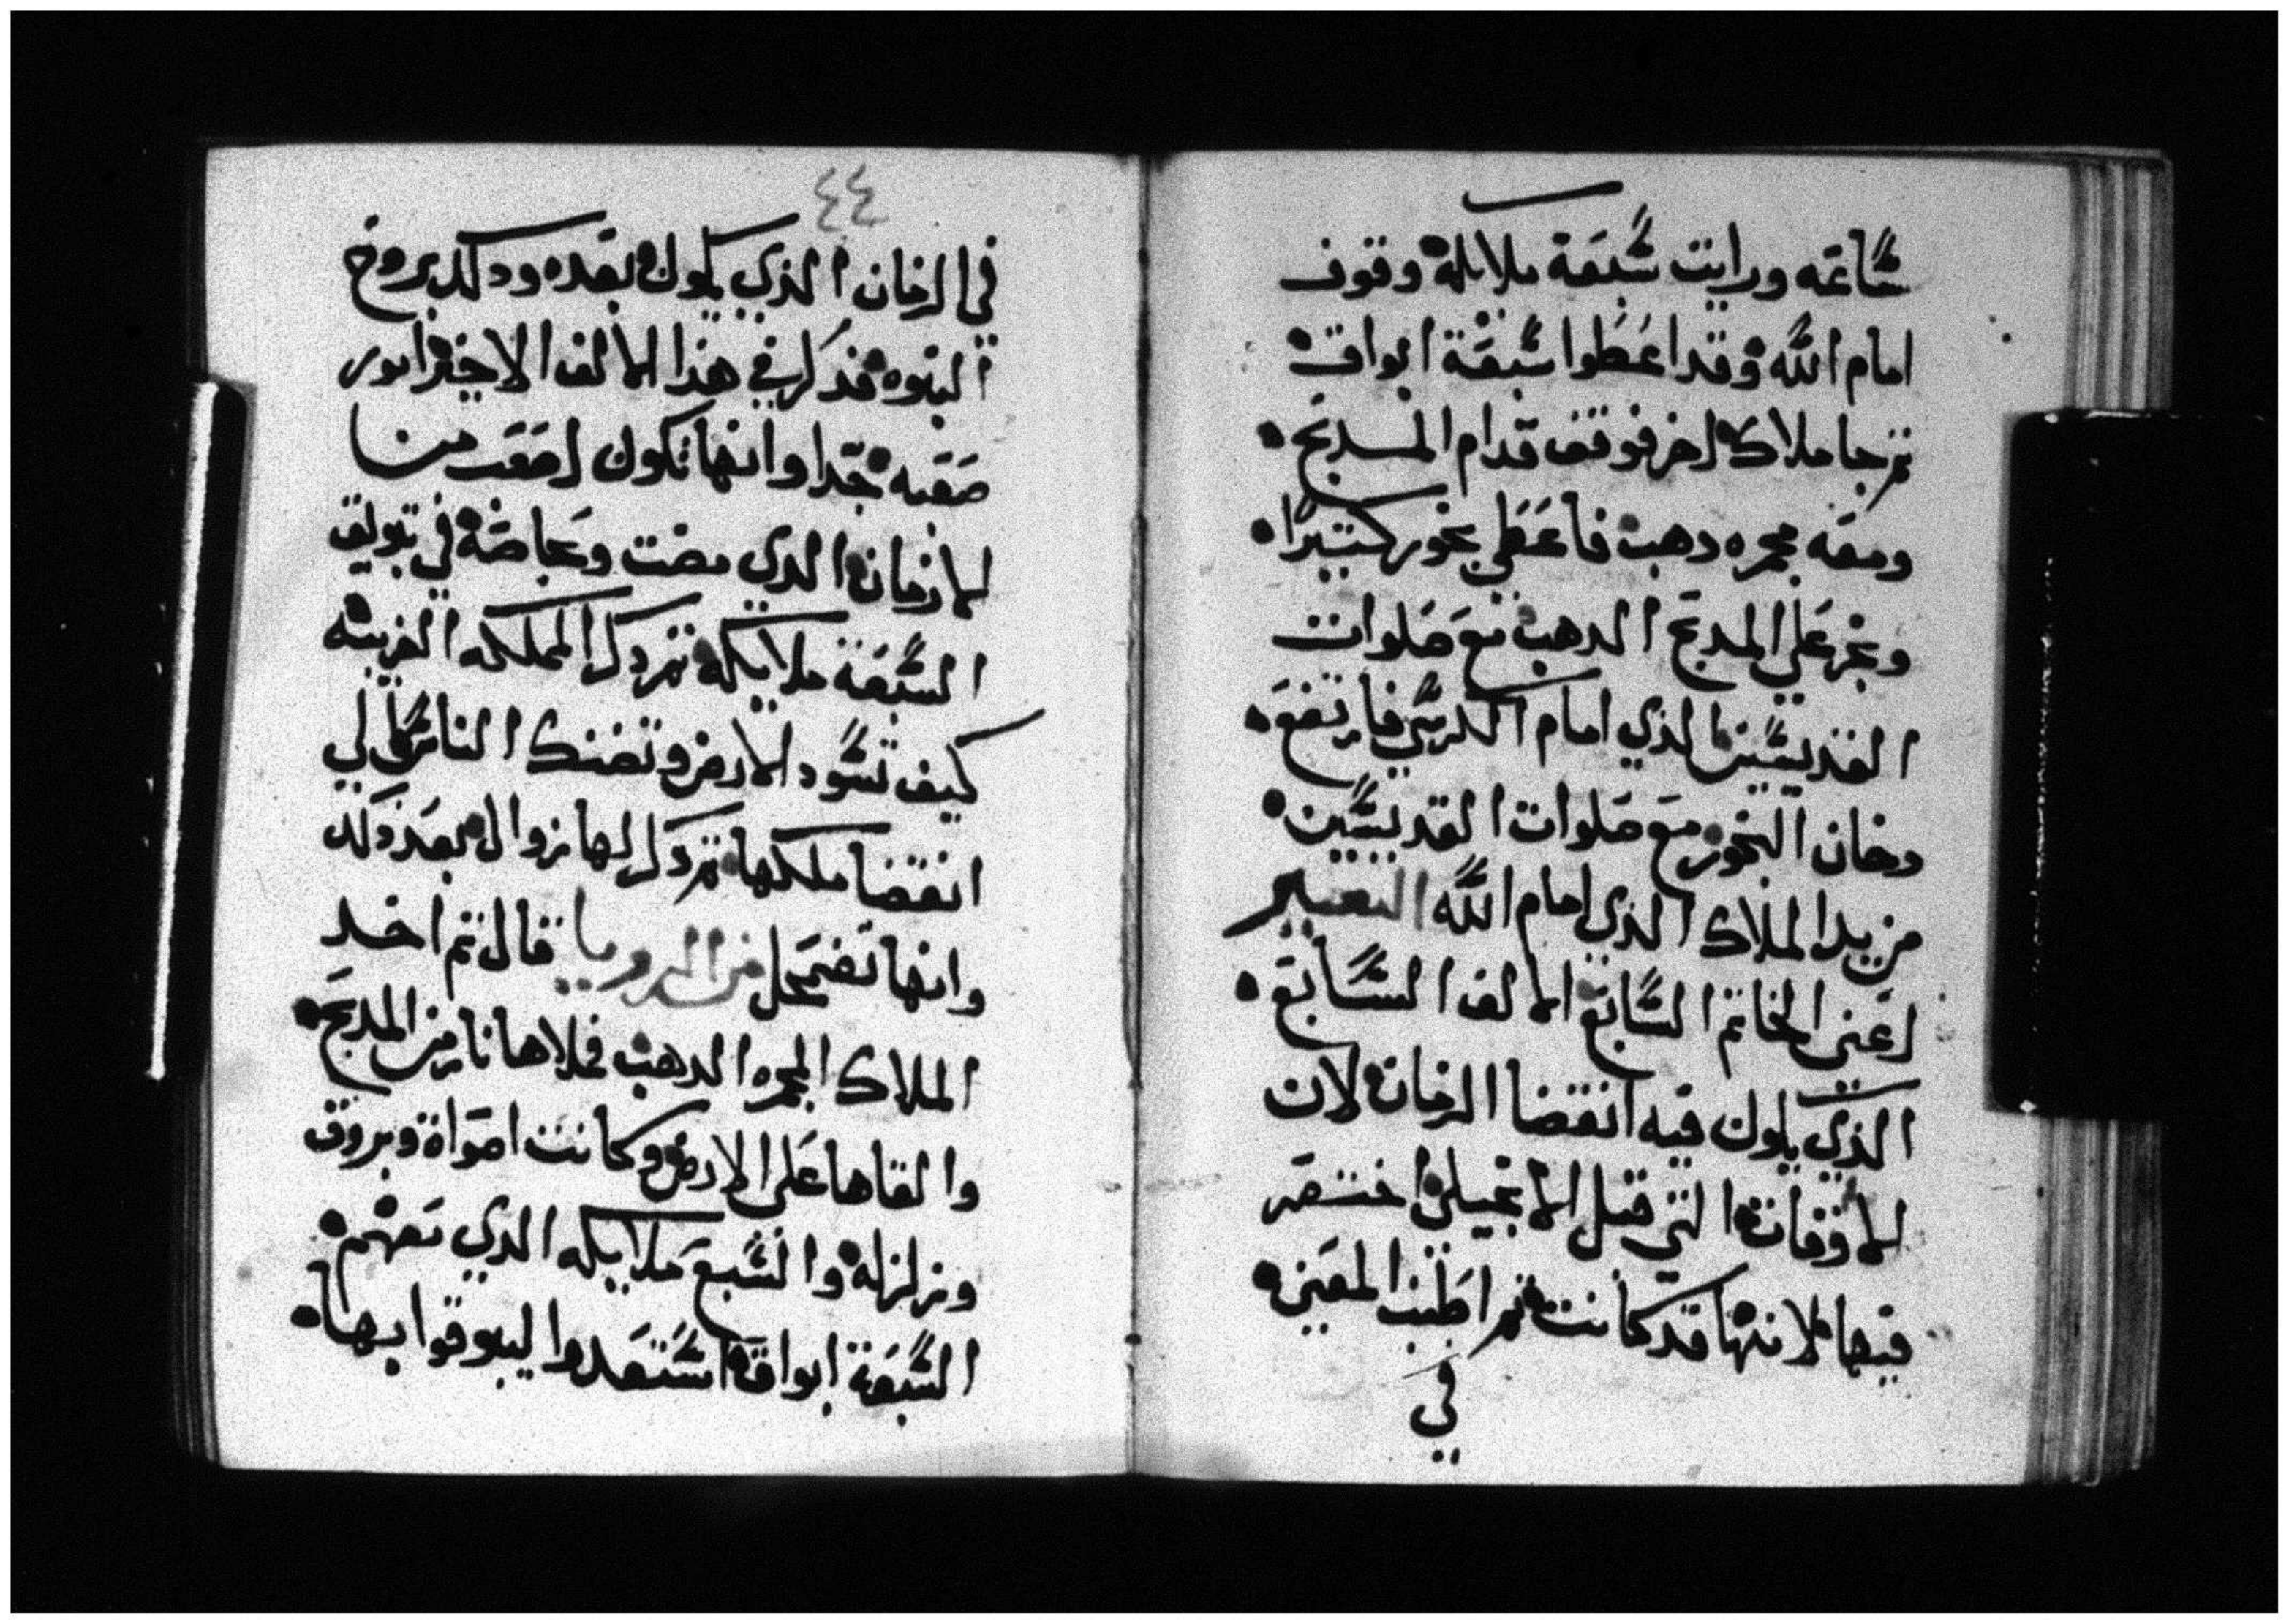 ساعه ورايت سبعة ملايكة وقوف
امام الله وقد اعطوا سبعة ابواق
ثم جا ملاك اخر فوقف قدام المدبح
ومعه مجمره دهب فاعطي بخور كتيرا
وبخر علي المدبح الدهب مع صلوات
القديسين الذي امام الكرسي فارتفع
دخان البخور مع صلوات القديسين
من يد الملاك الذي امام الله التفسير
اعني الخاتم السابع الالف السابع
الذي يكون فيه انقضا الزمان لان
الاوقات التي قبل الانجيل اختصر
فيها لانها قد كانت ثم اطنب المعني
في
٤٤
في الزمان الذي يكون بعده ودلك بروح
النبوه فذكر في هذا الالف الاخير امور
صعبه جدا وانها تكون اصعب من
الازمان الدي مضت وخاصة في تبويق
السبعة ملايكه ثم دكر المملكه الغريبه
كيف تسود الارض وتضنك الناس الي
انقضا ملكها ثم دكر لها زوال بعد دلك
وانها تضمحل من الرويا قال ثم اخد
الملاك المجمره الدهب فملاها نار من المدبح
والقاها علي الارض وكانت اصواة وبروق
وزلزلة والسبع ملايكه الدي معهم
السبعة ابواق استعدوا ليبوقوا بها